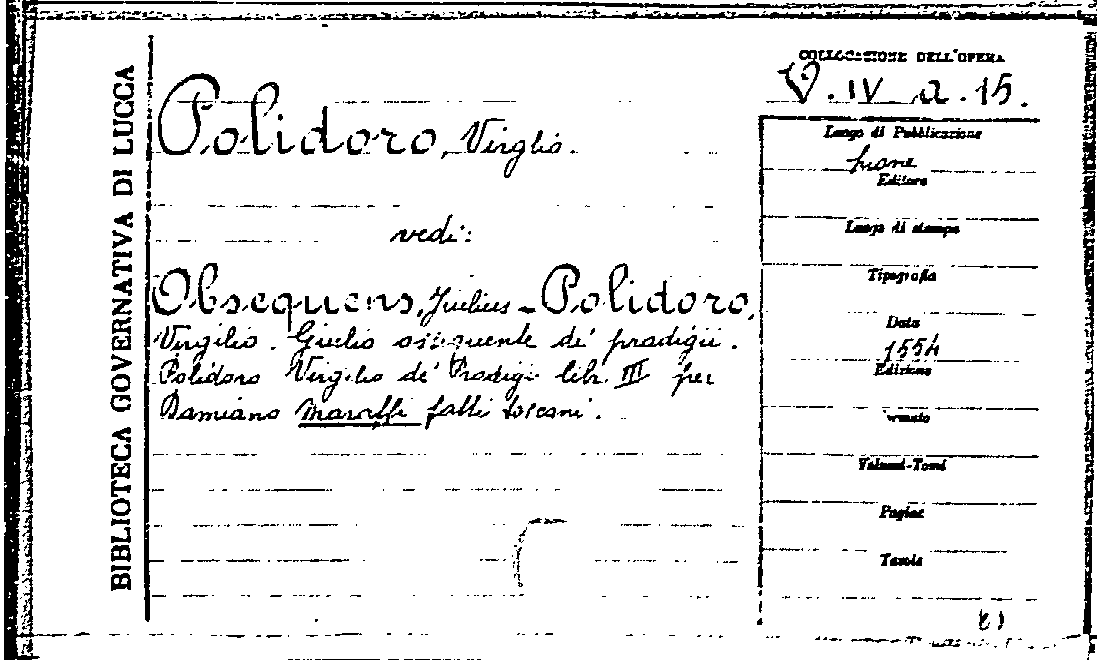 BIBLIOTECA GOVERNATIVA DI LUCCA
COLLOCAZIONE DELL'OPERA
V. IV a. 15.
Polidoro, Virglio.
vedi:
Obsequens, Julius - Polidoro,
Virgilio. Giulio ossequente de' prodigii.
Polidoro Virgilio de' Prodigi libr. III per
Damiano Maraffi fatti toscani.
Luogo di Pubblicazione
Lione
Editore
Luogo di stampa
Tipografia
Data
1554
Edizione
Formato
Volumi-Tomi
Pagine
Tavole